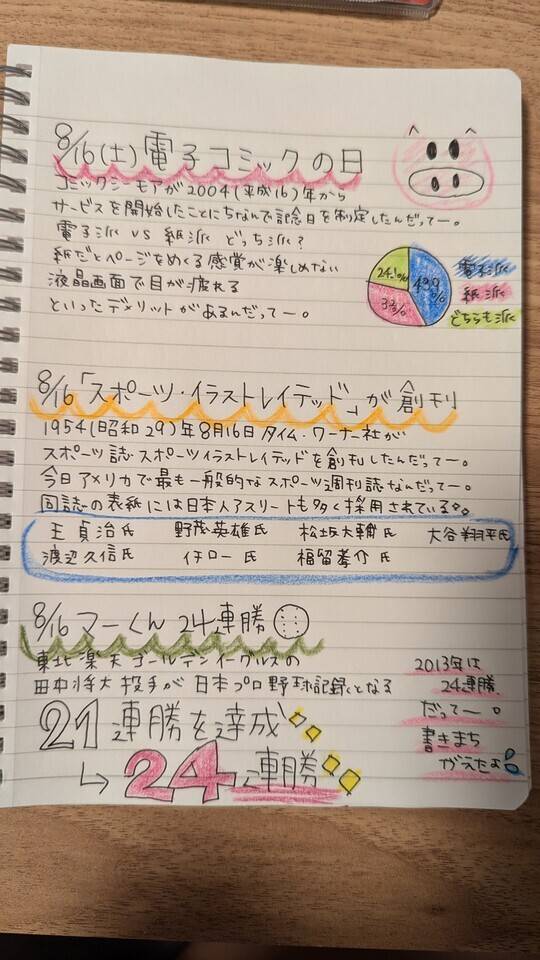 8/16(土)電子コミックの日
コミックシーモアが2004(平成16)年から
サービスを開始したことにちなんで記念日を制定したんだってー。
電子派 VS 紙派 どっち派?
紙だとページをめくる感覚が楽しめない
液晶画面で目が疲れる
といったデメリットがあるんだってー。
電子派
紙派
どちらも派
8/16「スポーツ・イラストレイテッド」が創刊
1954(昭和29)年8月16日タイム・ワーナー社が
スポーツ誌スポーツイラストレイテッドを創刊したんだってー。
今日アメリカで最も一般的なスポーツ週刊誌なんだってー。
同誌の表紙には日本人アスリートも多く採用されている
王 貞治氏 野茂英雄氏 松坂大輔氏 大谷翔平氏
渡辺久信氏 イチロー氏 福留孝介氏
8/16 マーくん 24連勝
東北楽天ゴールデンイーグルスの
田中将大投手が日本プロ野球記録となる
21連勝を達成
↳ 24連勝
2013年は
24連勝
だってー。
書きまち
がえたよ